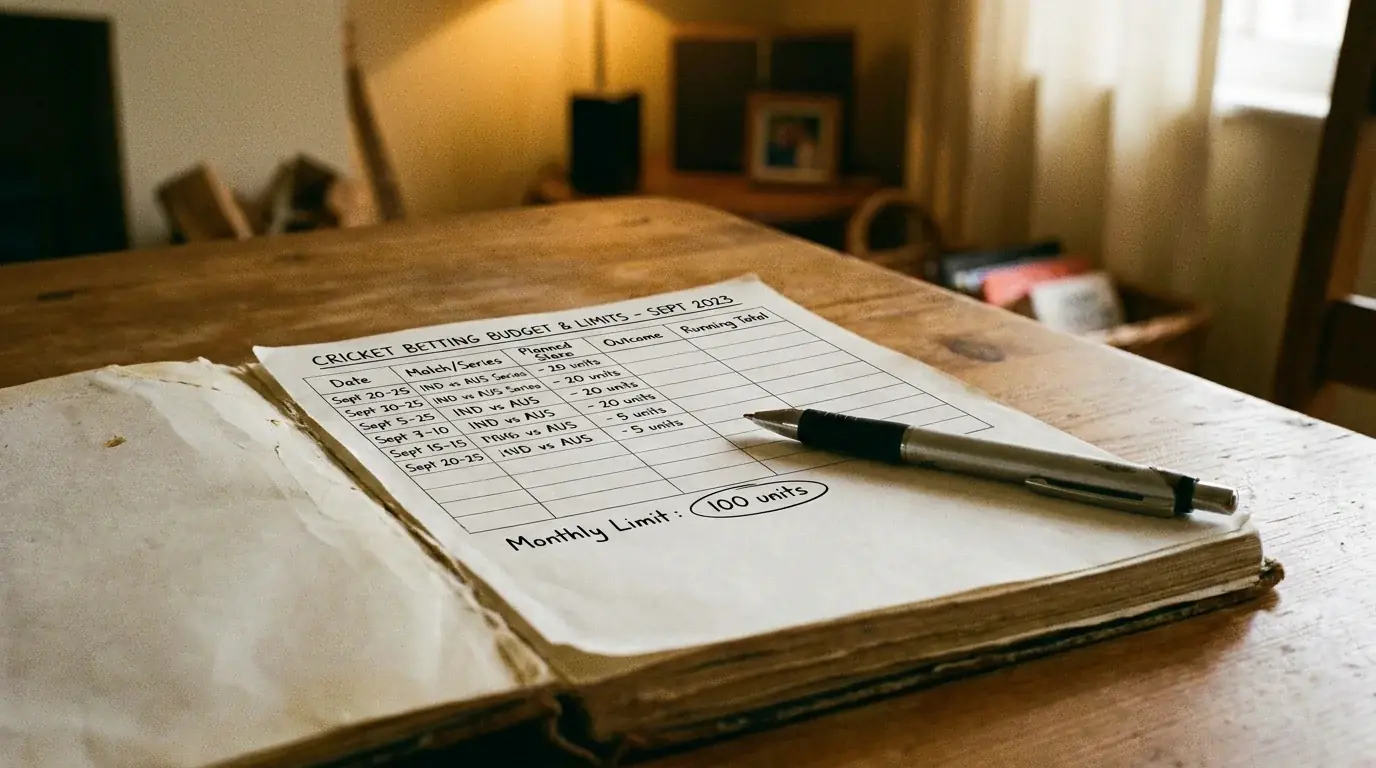 CRICKET BETTING BUDGET & LIMITS - SEPT 2023
Date Match/Series Planned Stare Outcome Running Total
Sept 20-25 IND vs AUS Series - 20 units
Sept 10-25 IND vs AUS Series - 20 units
Sept 5-25 IND vs AUS - 20 units
Sept 7-10 IND vs AUS - 20 units
Sept 15-15 vs AUS - 5 units
Sept 20-25 IND vs AUS - 5 units
Monthly Limit: 100 units